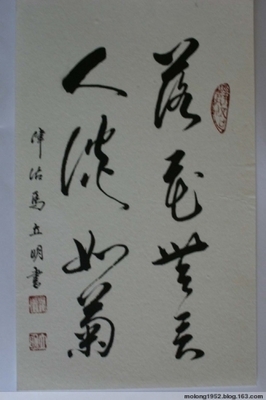 落花無言
人淡如菊
津沽馬立明書
molong1952.blog.163.com